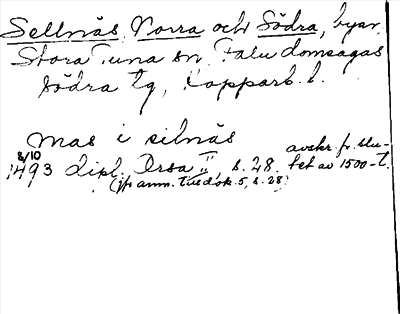 Sellnäs, Norra och Södra, byar
Stora Tuna sn, Falu domsagas
södra tg, Kopparb. l.
Mas i silnäs
8/10 1493 dipl. Orsa II, s. 28. avskr. fr. slu-
(jfr anm. Tusdok. 5, s. 28) tet av 1500-t.